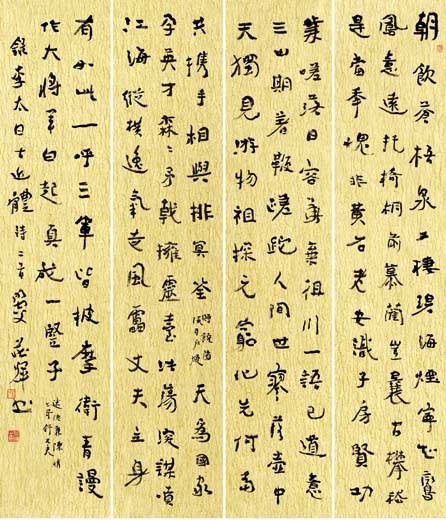 朝飲蒼梧泉夕棲碧海煙寧知鸞
鳳意遠托椅桐前慕藺豈曩古攀嵇
是當年愧非黃石老安識子房賢功
業嗟落日容華棄徂川一語已道意
三山期著鞭蹉跎人間世寥落壺中
天獨見游物祖探元窮化先何當
共攜手相與排冥筌 贈饒陽張司戶燧 天為國家
孕英才森々矛戟擁靈臺浩蕩深謀噴
江海縱橫逸氣走風雷丈夫立身
有如此一呼三軍皆披靡衛青謾
作大將軍白起真成一豎子
述德兼陳情
上哥舒大夫
錄李太白古近體詩二首